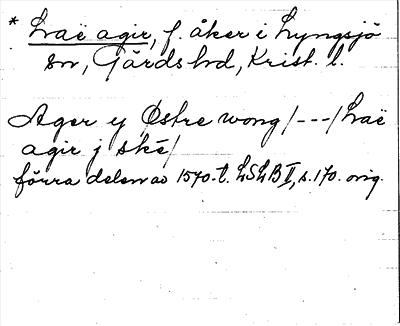 * Lraë agir, f. åker i Lyngsjö
sn, Gärds hd, Krist. l.
Ager ÿ Østre wong /---/ Lraë
agir j skë /
förra delen av 1570-t. LSLB II, s. 170. orig.